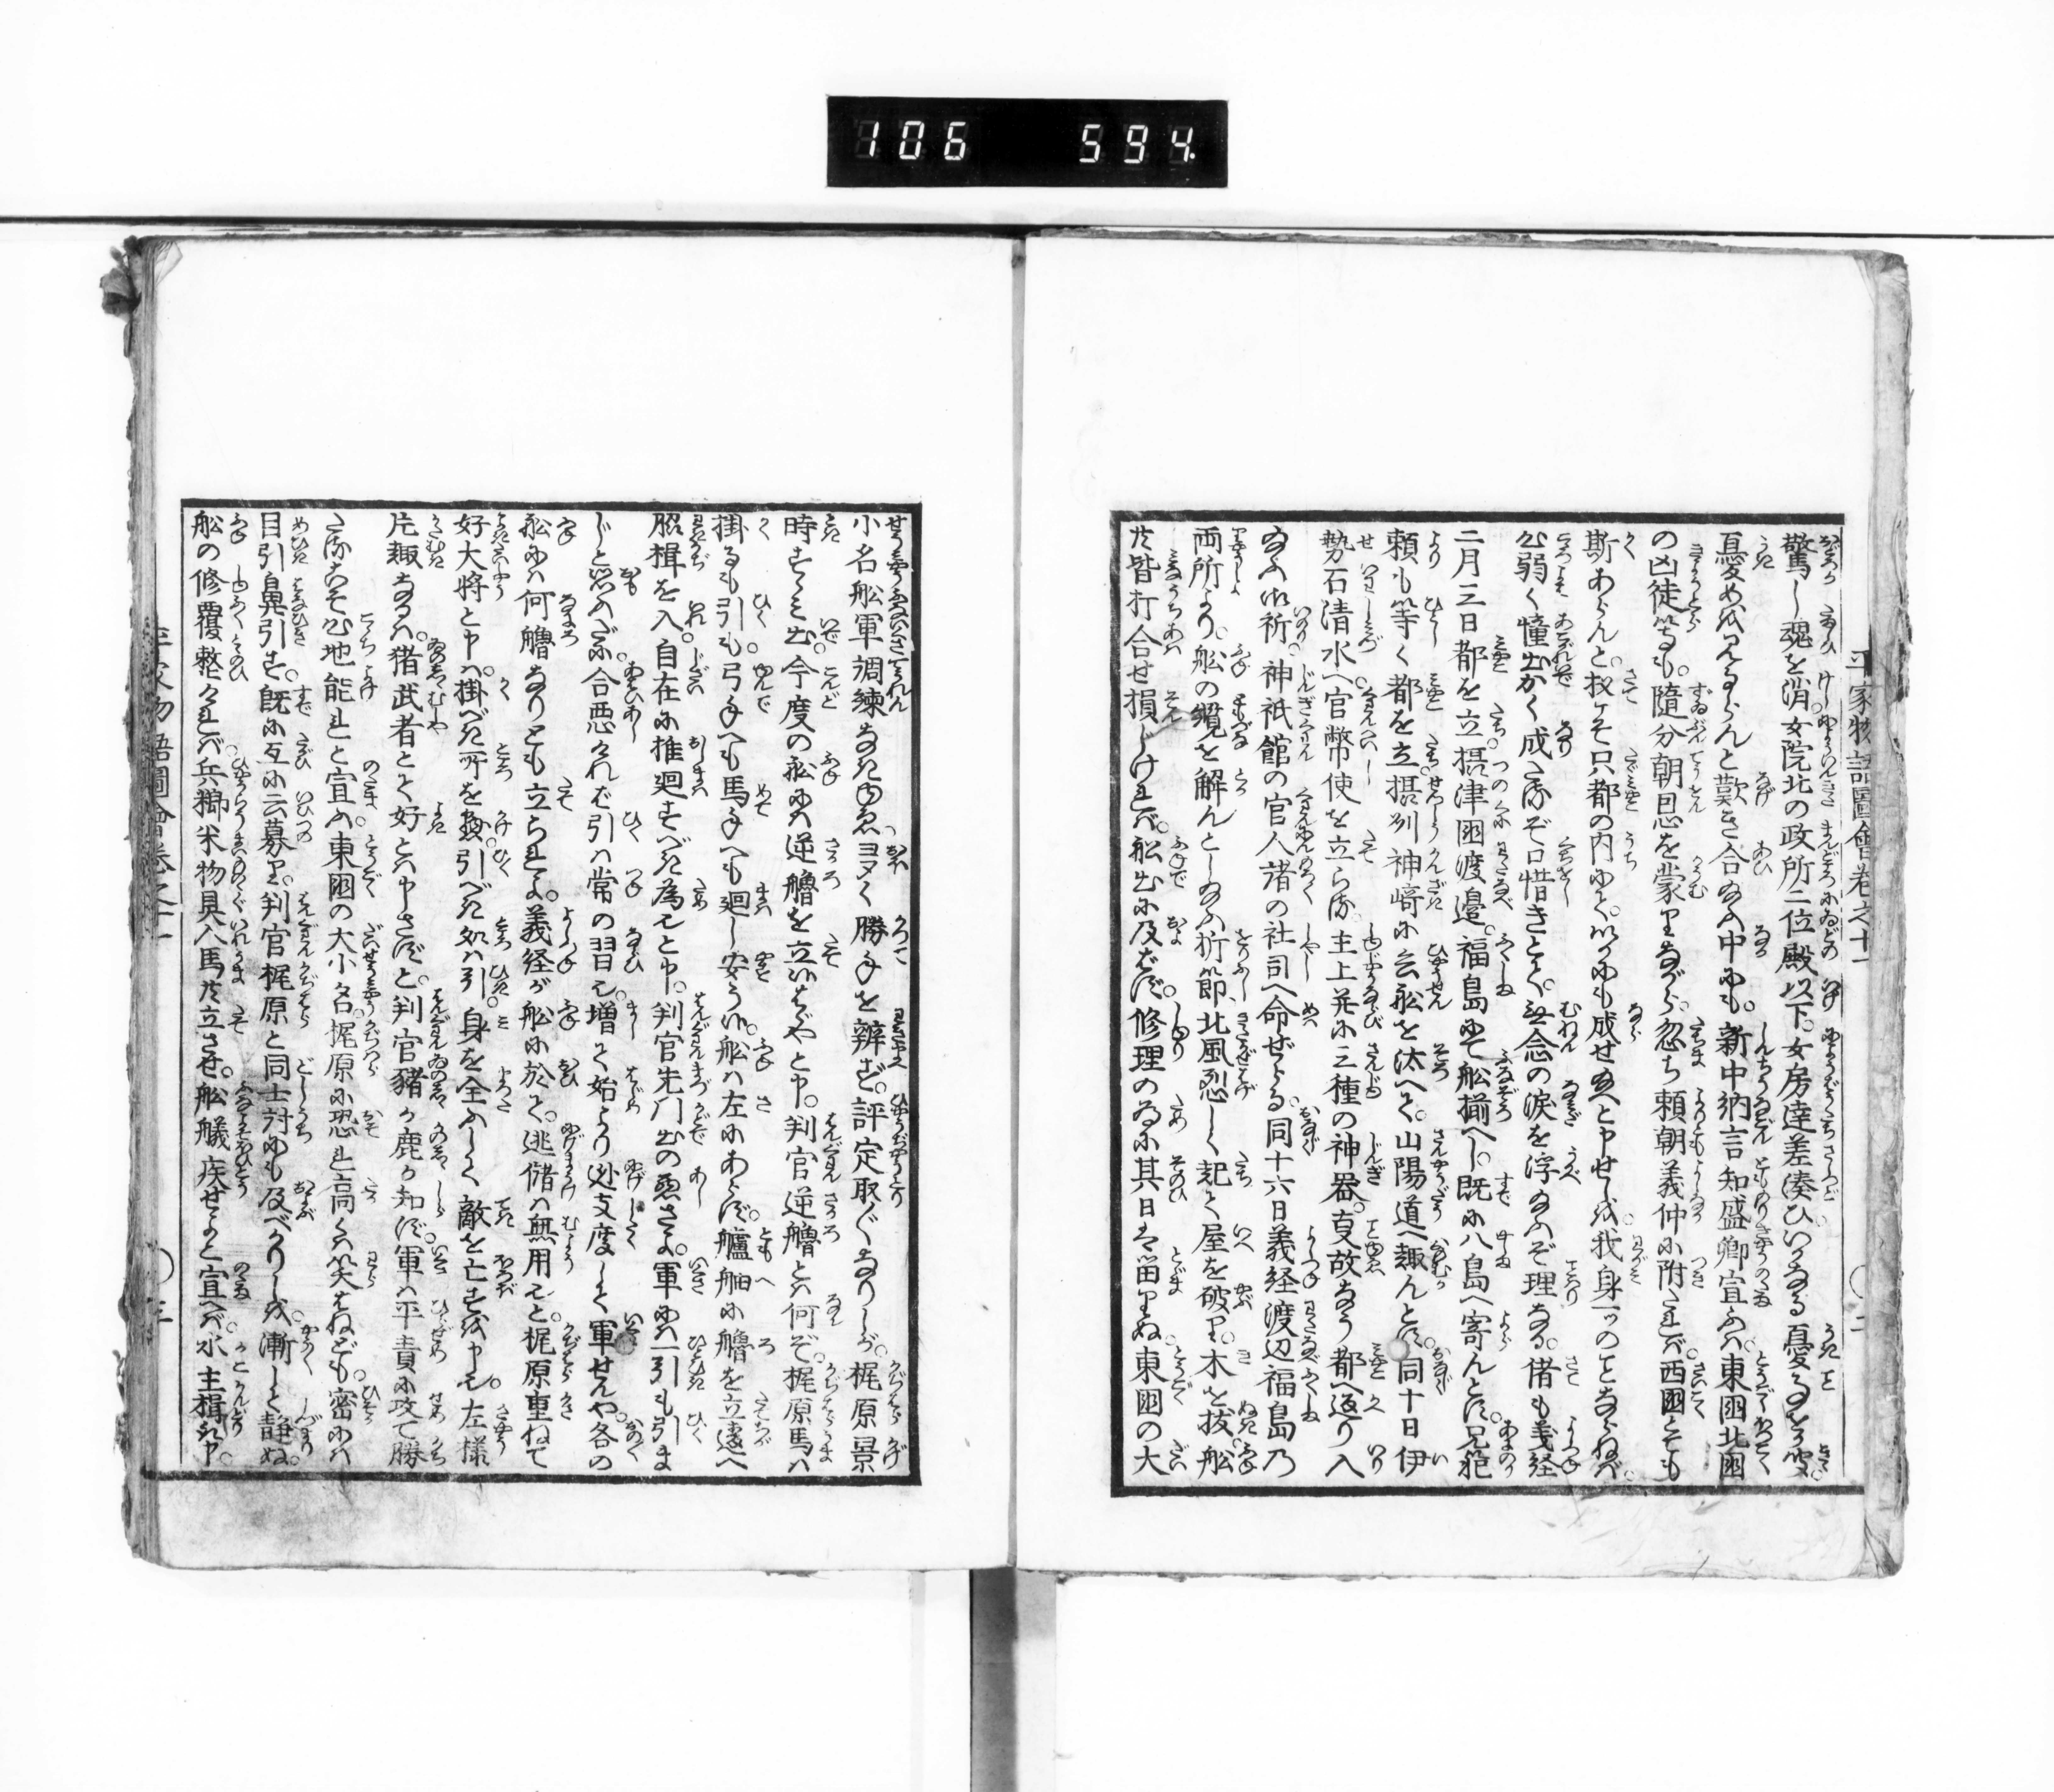 106 594
平家物語圖會卷之十一
驚し魂を消。女院北の政所二位殿以下。女房達差湊ひ。いかなる憂事をか聞
憂めを見るらんと歎き合給ふ中にも。新中納言知盛卿宣ふハ。東国北国
の凶徒等も。随分朝恩を蒙りながら。忽ち頼朝義仲に附たれバ。西国とても
斯あらんと。扨こそ只都の内にて。いかにも成せ給へと申せしを。我身一つのことならねバ。
心弱く憧出かく成たるぞ口惜きとて。無念の涙を浮給ふぞ理なる。偖も義経
二月三日都を立。摂津国渡邉。福島にて船揃へし。既に八島へ寄んとす。兄範
頼も等く都を立。摂州神崎に兵船を汰へて。山陽道へ趣んとす。同十日伊
勢石清水へ官幣使を立らる。主上并に三種の神器。事故なう都へ返り入
給ふ御祈。神祇館の官人諸の社司へ命ぜらる。同十六日義経渡辺福島乃
両所より。船の纜を解んとし給ふ折節、北風烈しく起て屋を破り。木を抜。船
共皆打合せ損じけれバ。船出に及ばず。修理の為に其日ハ留りぬ。東国の大
小名船軍調練なき由ゑヨク〳〵勝手を辨ず。評定取〴〵なりしが。梶原景
時すゝミ出。今度の船にハ逆櫓を立候ばやと申。判官逆櫓とハ何ぞ。梶原馬ハ
掛るも引も弓手へも馬手へも廻し安う候。船ハ左にあらず。艫舳に櫓を立違へ
脇楫を入。自在に推廻すべき為也と申。判官先門出の悪さよ。軍にハ一引も引ま
じと思へだに。合悪けれバ引ハ常の習也。増て始より逃支度して軍せんや。各の
船にハ何櫓なりとも立られよ。義経が船に於て。逃儲ハ無用也と。梶原重ねて
好大将と申ハ。掛べき所を懸。引べき処ハ引。身を全ふして敵を亡すを申也。左様
片趣なるハ。猪武者とて好とハ申さずと。判官豬か鹿か知ず。軍ハ平責に攻て勝
たるこそ心地能けれと宣ふ。東国の大小名。梶原に恐れ高くハ笑はねども。密にハ
目引鼻引す。既に互に云募り。判官梶原と同士討にも及べかりしを。漸として静ぬ。
船の修覆整けれバ。兵粮米物具入馬共立させ。船艤疾せよと宣へバ。水主楫取申。
平家物語圖會卷之十一